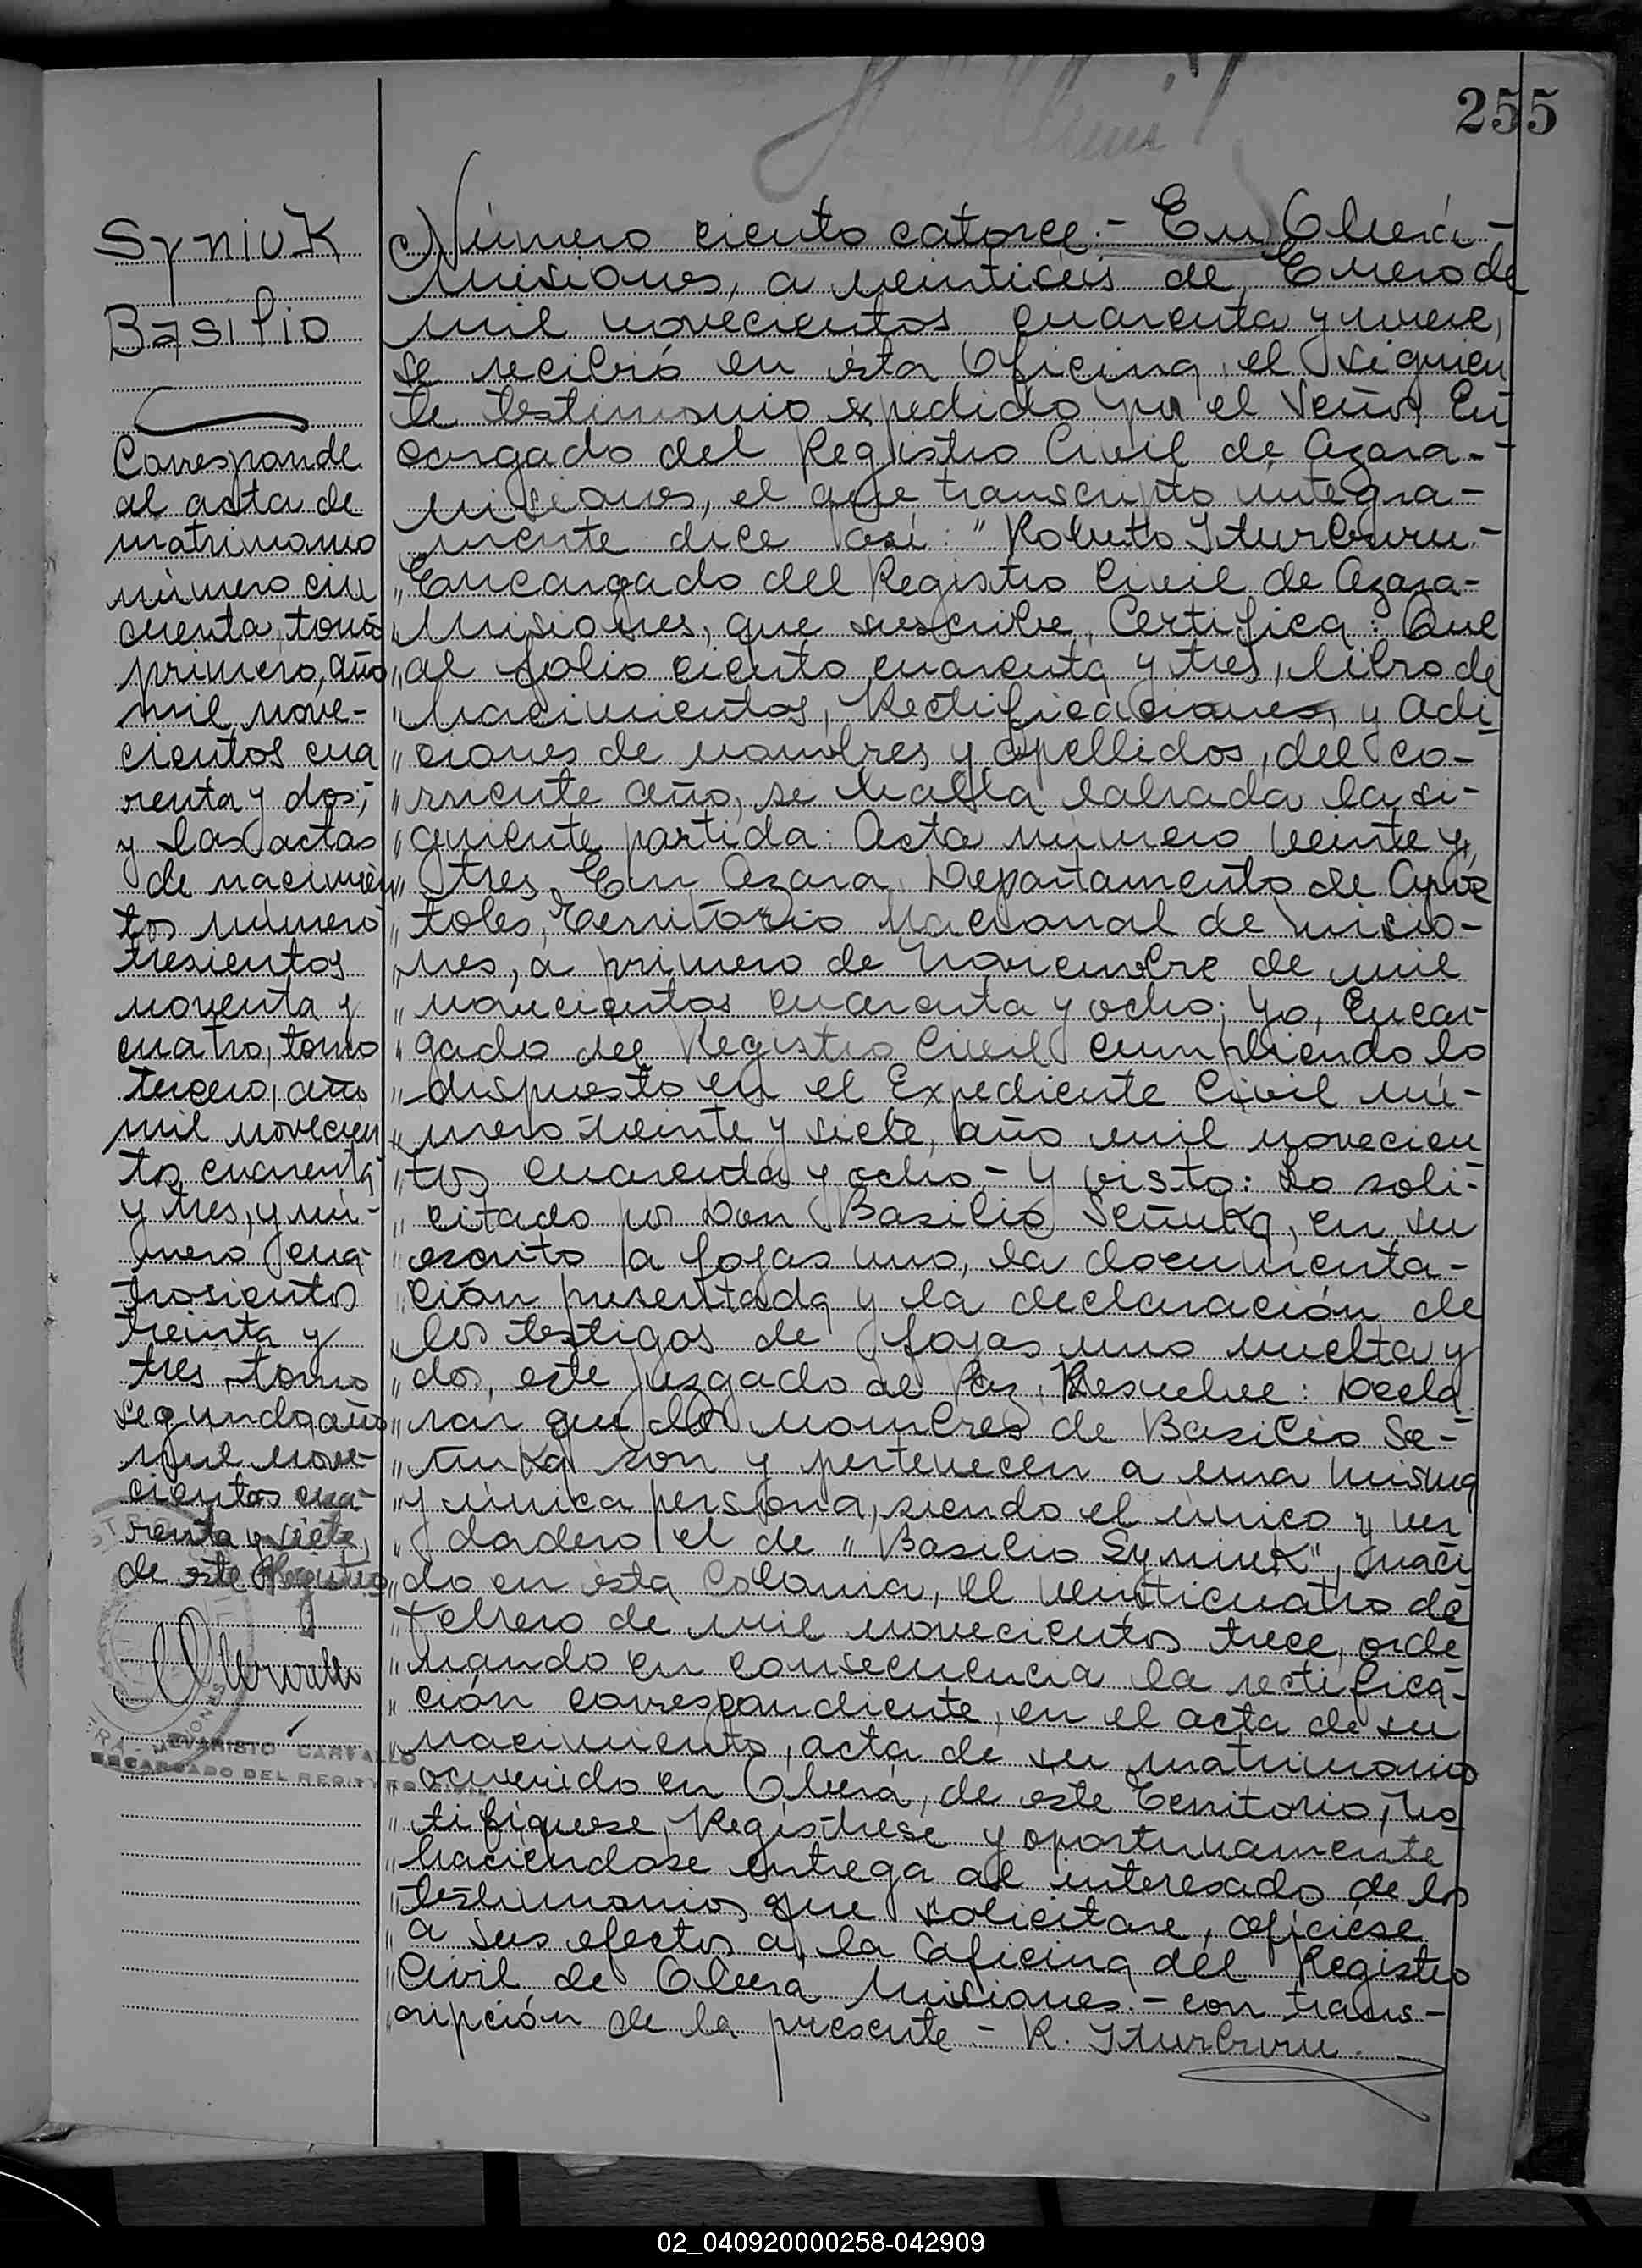 255
Syniuk
Basilio
Corresponde
al acta de
matrimonio
número cin
cuenta, tomo
primero, año
mil nove-
cientos cua
renta y dos;
y las actas
de nacimien
tos número
tresientos
noventa y
cuatro, tomo
tercero, año
mil novecien
to cuarenta
y tres, y nú-
mero cua-
trosientos
treinta y
tres, tomo
segundo, año
mil nove-
cientos cua-
renta y siete,
de este Registro
EVARISTO CARVALLO
ENCARGADO DEL REGISTRO
Número ciento catorce.- En Oberá-
Misiones, a veintiséis de Enero de
mil novecientos cuarenta y nueve,
se recibió en ésta Oficina, el siguien
te testimonio expedido por el Señor En
cargado del Registro Civil de Azara-
Misiones, el que transcripto integra-
mente dice así: "Roberto Iturburu.-
"Encargado del Registro Civil de Azara-
"Misiones, que suscribe, Certifica: Que
"al folio ciento cuarenta y tres, libro de
"Nacimientos, Rectificaciones, y Adi
"ciones de nombres y apellidos, del co-
"rriente año, se halla labrada la si-
"guiente partida: Acta número veinte y
"tres. En Azara, Departamento de Após
"toles, Territorio Nacional de Misio-
"nes, a primero de Noviembre de mil
"novecientos cuarenta y ocho; Yo, Encar-
"gado del Registro Civil cumpliendo lo
"dispuesto en el Expediente Civil nú-
"mero treinte y siete, año mil novecien
"tos cuarenta y ocho.- Y visto: Lo soli-
"citado por Don Basilio Señuka, en su
"escrito a fojas uno, la documenta-
"ción presentada y la declaración de
"los testigos de fojas uno vuelta y
"dos, este Juzgado de Paz, Resuelve: Decla
"rar que los nombres de Basilio Se-
"ñuka son y pertenecen a una misma
"y única persona, siendo el único y ver
"dadero el de "Basilio Syniuk", naci
"do en ésta Colonia, el veinticuatro de
"Febrero de mil novecientos trece, orde
"nando en consecuencia la rectifica-
"ción correspondiente, en el acta de su
"nacimiento, acta de su matrimonio
"ocurrido en Oberá, de este Territorio, No
"tifíquese, Regístrese y oportunamente
"haciendose entrega al interesado de los
"testimonios que solicitare, ofíciese
"a sus efectos a la Oficina del Registro
"Civil de Oberá Misiones.- con trans-
"cripción de la presente.- R. Iturburu.
02_040920000258-042909